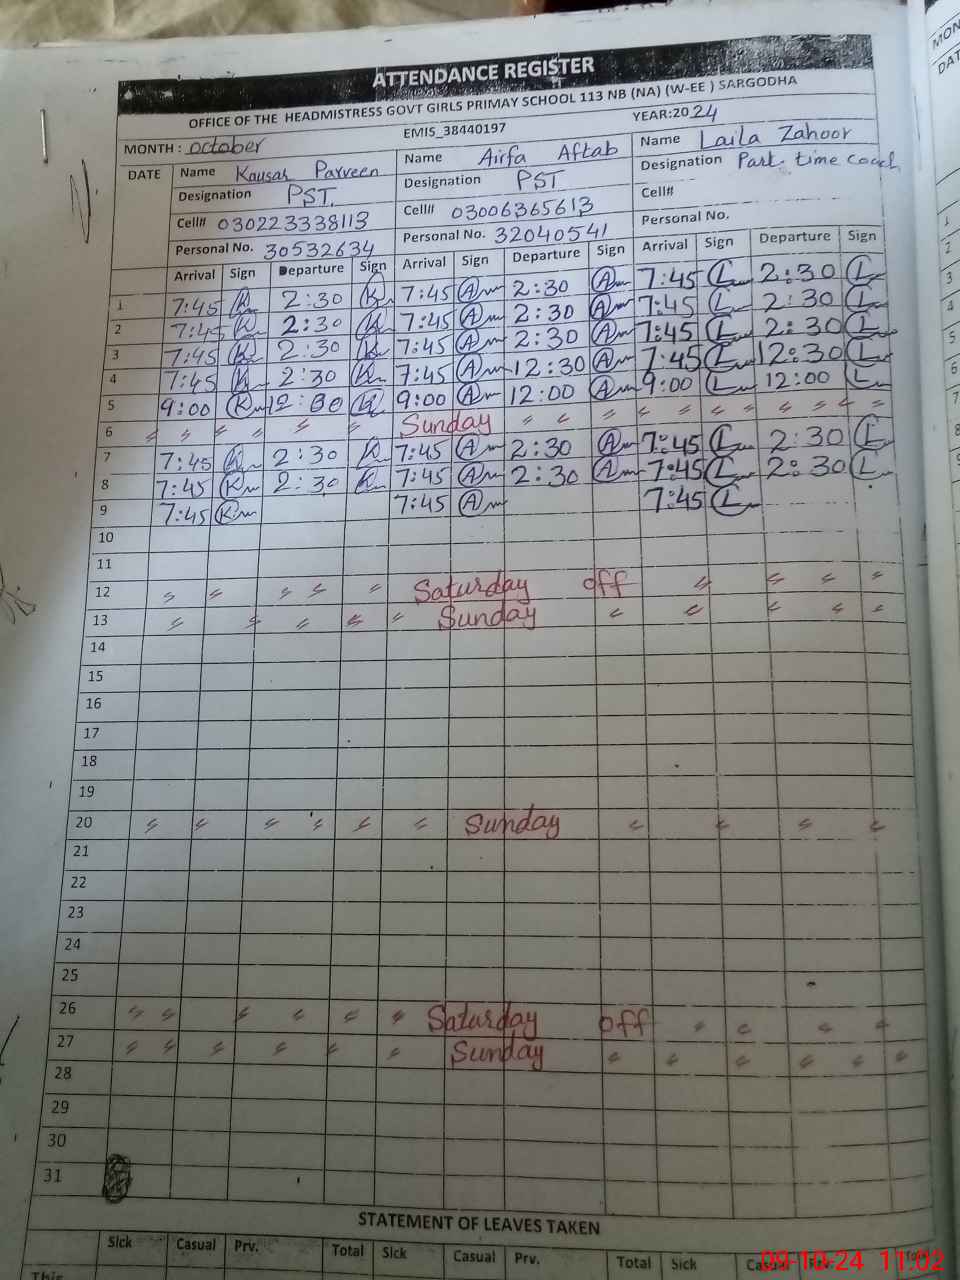 ATTENDANCE REGISTER
OFFICE OF THE HEADMISTRESS GOVT GIRLS PRIMAY SCHOOL 113 NB (NA) (W-EE ) SARGODHA
MONTH : october EMIS_38440197 YEAR:2024
DATE Name Kausar Parveen Name Airfa Aftab Name Laila Zahoor
Designation PST. Designation PST Designation Part time coach
Cell# 030223338113 Cell# 03006365613 Cell#
Personal No. 30532634 Personal No. 32040541 Personal No.
Arrival Sign Departure Sign Arrival Sign Departure Sign Arrival Sign Departure Sign
1 7:45 K 2:30 K 7:45 A 2:30 A 7:45 L 2:30 L
2 7:45 K 2:30 K 7:45 A 2:30 A 7:45 L 2:30 L
3 7:45 K 2:30 K 7:45 A 2:30 A 7:45 L 2:30 L
4 7:45 K 2:30 K 7:45 A 12:30 A 7:45 L 12:30 L
5 9:00 K 12:00 K 9:00 A 12:00 A 9:00 L 12:00 L
6 Sunday
7 7:45 K 2:30 K 7:45 A 2:30 A 7:45 L 2:30 L
8 7:45 K 2:30 K 7:45 A 2:30 A 7:45 L 2:30 L
9 7:45 K 7:45 A 7:45 L
10
11
12 Saturday off
13 Sunday
14
15
16
17
18
19
20 Sunday
21
22
23
24
25
26 Saturday off
27 Sunday
28
29
30
31
STATEMENT OF LEAVES TAKEN
Sick Casual Prv. Total Sick Casual Prv. Total Sick Casual Prv. Total
This
09-10-24 11:02